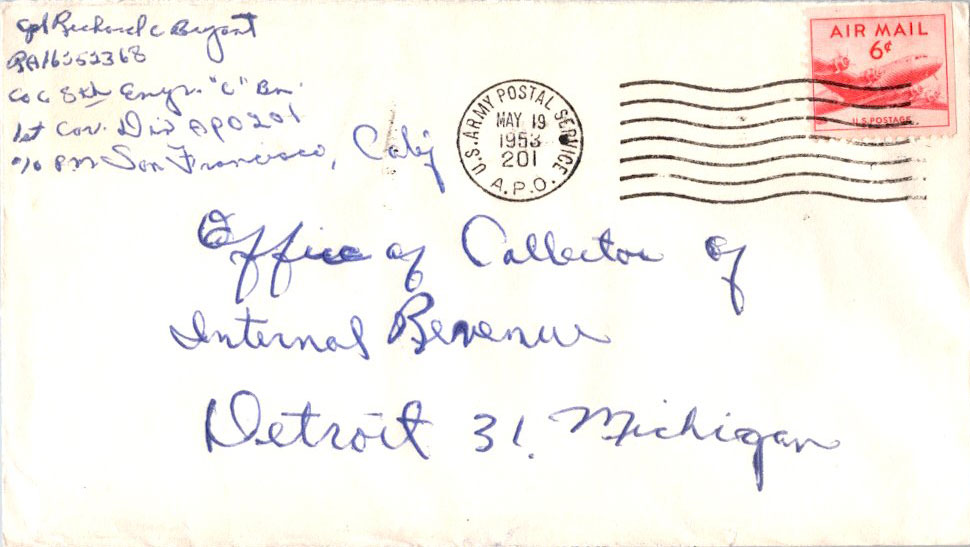 Cpl Richard C Bryant
RA16352368
Co C 8th Engr. "C" Bn.
1st Cav. Div APO 201
c/o PM San Francisco, Calif
U.S. ARMY POSTAL SERVICE
MAY 19
1953
201
A.P.O.
AIR MAIL
6¢
U.S. POSTAGE
Office of Collector of
Internal Revenue
Detroit 31, Michigan